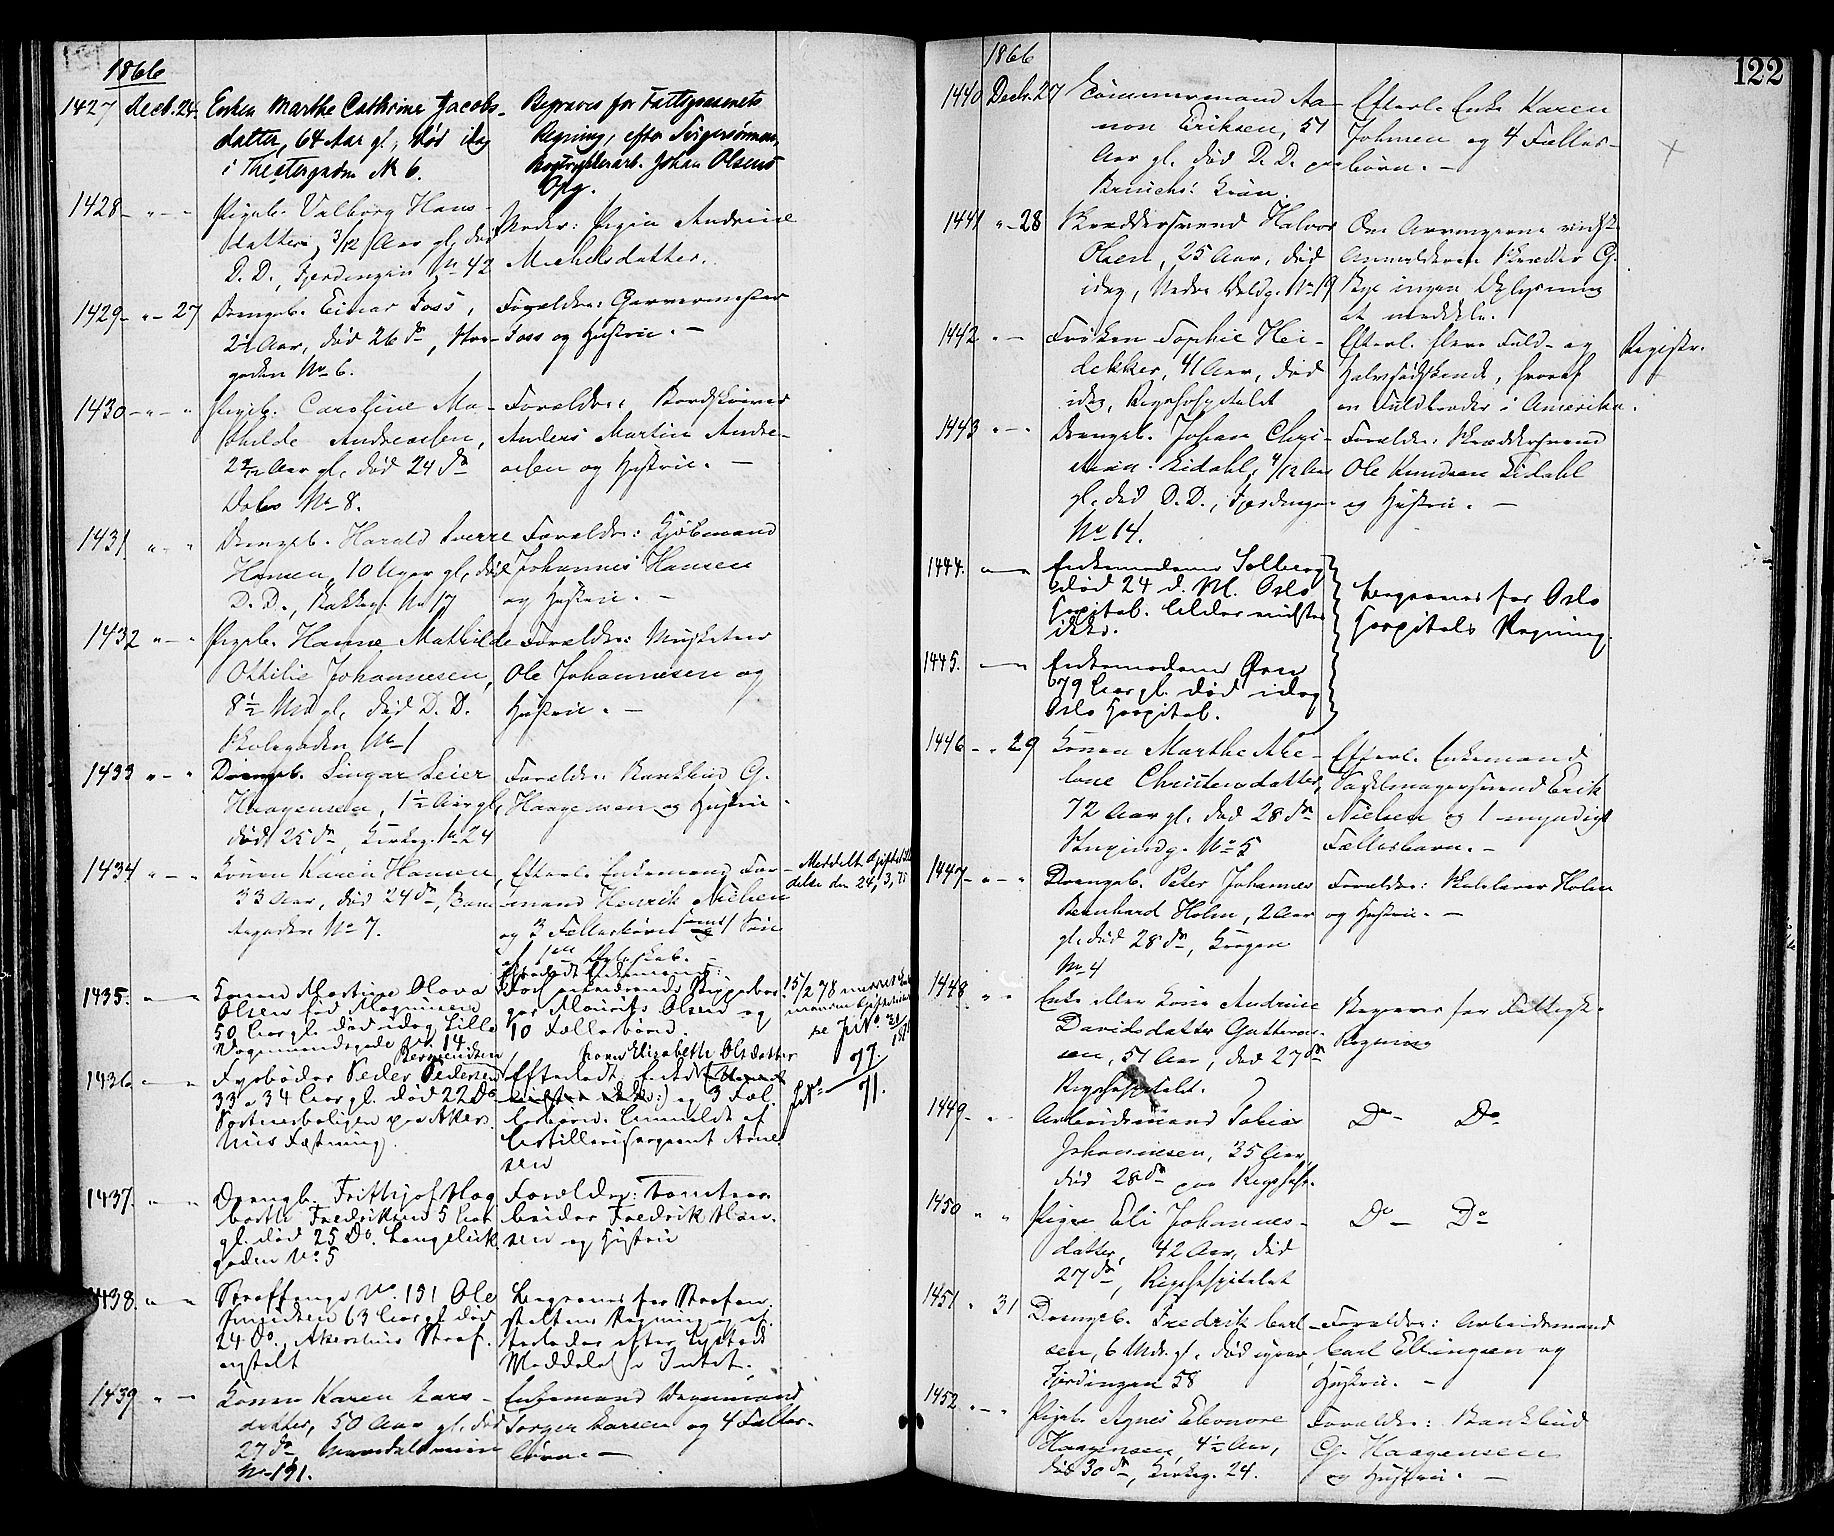 1866
1427 Decb. 24. Enken Marthe Cathrine Jacobs-
datter, 64 Aar gl, død idag
i Theatergaden No 6.
Begraves for Fattigvæsenets
Regning, efter Svigersønnen,
Bogtrykkerarb. Johan Olsens
Opg.
1428 - " - - Pigeb. Valborg Hans-
datter, 3/12 Aar gl, død
D. D., Fjerdingen No 42
Moder: Pigen Andrine
Michelsdatter.
1429 - " - 27 Drengeb. Einar Foss,
2½ Aar, død 26 ds, Stor-
gaden No 6.
Forældre: Garvermester
Foss og Hustru. -
1430 - " - " Pigeb. Caroline Ma-
thilde Andreasen,
Aar gl, død 24 ds
Oslo No 8.
Forældre: Bordskriver
Anders Martin Andre-
asen og Hustru. -
1431 " - " Drengeb. Harald Sverre
Hansen, 10 Uger gl, død
D. D., Bakkeg. No 17
Forældre: Kjøbmand
Johannes Hansen
og Hustru. -
1432 " - " Pigeb. Hanna Mathilde
Ottilie Johannesen,
8½ Md gl, død D. D.
Skolegaden No 1
Forældre: Musketeer
Ole Johannesen og
Hustru. -
1433 " - " Drengeb. Singar Seier
Haagensen, 1½ Aar gl,
død 25 ds, Kirkeg. No 24
Forældre: Bankbud G.
Haagensen og Hustru.
1434 " - " Konen Karen Hansen,
33 Aar, død 24 ds,
No 7.
Efterl. Enkemand For-
mand Henrik Nielsen
og 3 Fællesbørn samt 1 Søn
af 1ste Ægteskab. -
Meddelt Skiftetilla-
delse den 24/3, 75
1435. " - Konen Martine Olava
Olsen født Magnusen
50 Aar gl. død idag Lille
Vognmandsgade No. 14
Efterladt Enkemand:
gar Mauritz Olsen og
10 Fællesbørn.
15/2 78
se JNo
1436 " - Fyrbøder Peder Pedersen
33 a 34 Aar gl. død 22 Do
Portnerboligen paa Akers-
huus Fæstning.
Lovise Elisabeth Olsdatter
Efterladt Enke
og 3 Fæl-
lesbørn. Anmeldt af
Artillerisergeant Arne-
sen
JNo 77. 71.
1437. " - Drengb. Frithjof Hag-
barth Fredriksen 5 Aar
gl. død 25 Do. Langeliik-
gaden No. 5
Forældre: Tomtear-
beider Fredrik Han-
sen og Hustru
1438. " - Straffange No. 191 Ole
Knudsen 63 Aar gl død
24 Do, Akershuus Straf-
anstalt
Begraves for Strafan-
staltens Regning og ef-
terlader efter
Meddelelse Intet.
1439 " - Konen Karen Lars-
datter, 50 Aar gl. død
27 ds,
No 191.
Enkemand Vognmand
Jørgen Larsen og 4 Fælles-
børn. -
122
1866
1440 Decbr. 27 Tømmermand Aa-
non Eriksen, 51
Aar gl. død D. D. paa
Krim.
Efterl. Enke Karen
Johnsen og 4 Fælles-
børn. -
1441 " - 28 Skræddersvend Halvor
Olsen, 25 Aar, død
idag, Nedre Voldg. No 19
Om Arvingerne vidste
Anmelderen Skræder G.
Bye ingen Oplysning
at meddele.
1442 " - Frøken Sophie Hei-
dekker, 41 Aar, død
idag, Rigshospitalet
Efterl. flere Fuld- og
Halvsødskende, hvoraf
en Fuldbroder i Amerika.
Registr.
1443 " - " Drengeb. Johan Chri-
stian Lidahl, 4/12 Aar
gl. død D. D., Fjerdingen
No 14.
Forældre: Skræddersvend
Ole Knudsen Lidahl
og Hustru. -
1444. Enkemadame Solberg
død 24 d. M. Oslo
Hospital. Alder vidstes
ikke.
Begraves for Oslo
Hospitals Regning.
1445. Enkemadame Øren
79 Aar gl. død idag
Oslo Hospital.
1446 - " 29 Konen Marthe Abe-
lone Christensdatter,
72 Aar gl. død 28 ds
No 5
Efterl. Enkemand
Sadelmagersvend Erik
Nielsen og 1 myndigt
Fællesbarn. -
1447 - " - " Drengeb. Peter Johannes
Bernhard Holm, 2 Aar
gl. død 28 ds, Krogen
No 4
Forældre: Holm
og Hustru. -
1448 " " Enke eller Kone Andrine
Davidsdatter Gutterm-
sen, 51 Aar, død 27 ds
Rigshospitalet.
Begraves for Fattigv.
Regning
1449 - " Arbeidsmand Tobias
Johannesen, 35 Aar,
død 28 ds paa Rigshosp.
Do - Do
1450 " " Pigen Eli Johannes-
datter, 42 Aar, død
27 ds, Rigshospitalet
Do - Do
1451 " 31 Drengeb. Fredrik Carl-
sen, 6 Mdr. gl. død igaar,
Fjerdingen 58
Forældre: Arbeidsmand
Carl Ellingsen og
Hustru. -
1452 " - " Pigeb. Agnes Eleonore
Haagensen, 4½ Aar,
død 30 ds, Kirkeg. 24.
Forældre: Bankbud
G. Haagensen
og Hustru. -